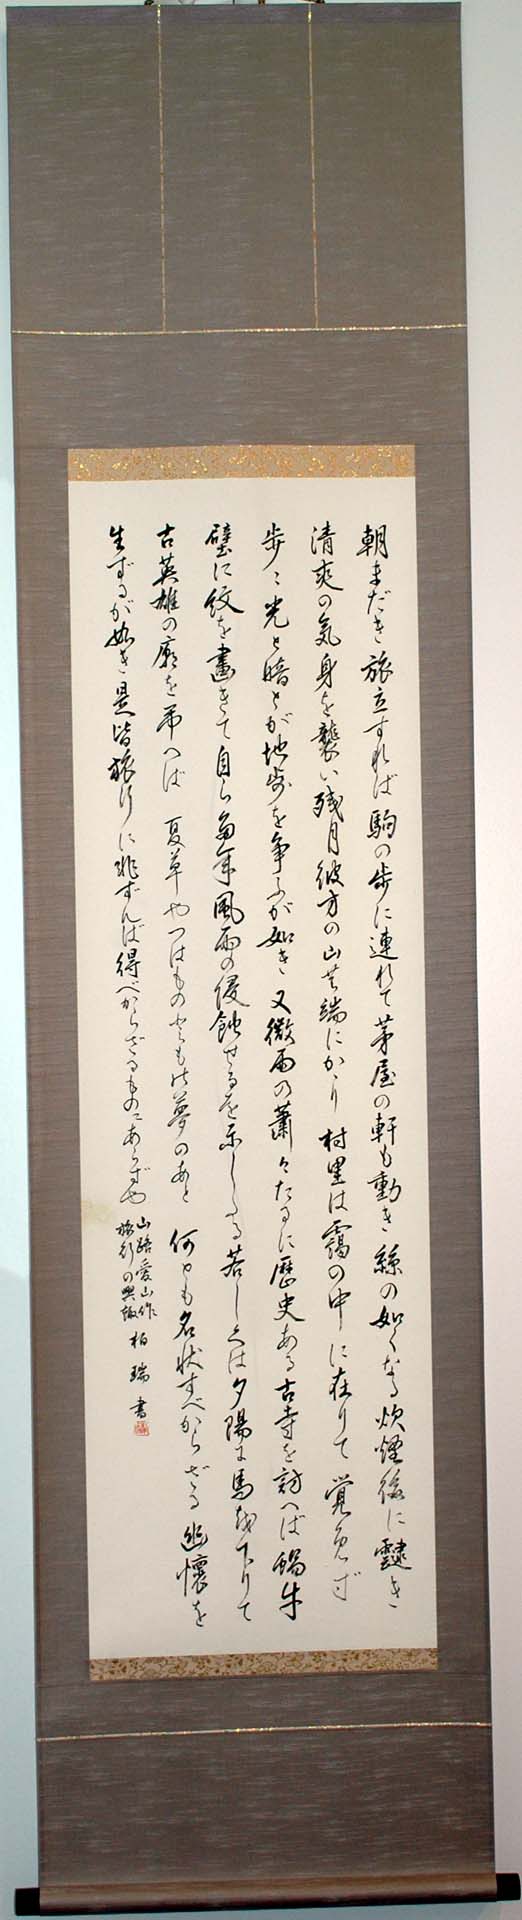 朝まだき旅立すれば駒の歩に連れて茅屋の軒も動き絲の如くなる炊煙後に靆き
清爽の気身を襲い残月彼方の山の端にかゝり村里は靄の中に在りて覚えず
歩々光と暗とが地歩を争ふが如き又微雨の蕭々たるに歴史ある古寺を訪へば蝸牛
壁に紋を畫きて自ら多年風雨の侵蝕せるを示したる若しくは夕陽に馬を下りて
古英雄の廟を弔へば 夏草やつはものどもが夢のあと 何とも名状すべからざる幽懐を
生ずるが如き是皆旅行に非ずんば得べからざるものにあらずや
山路愛山作
旅行の興趣
柏瑞書